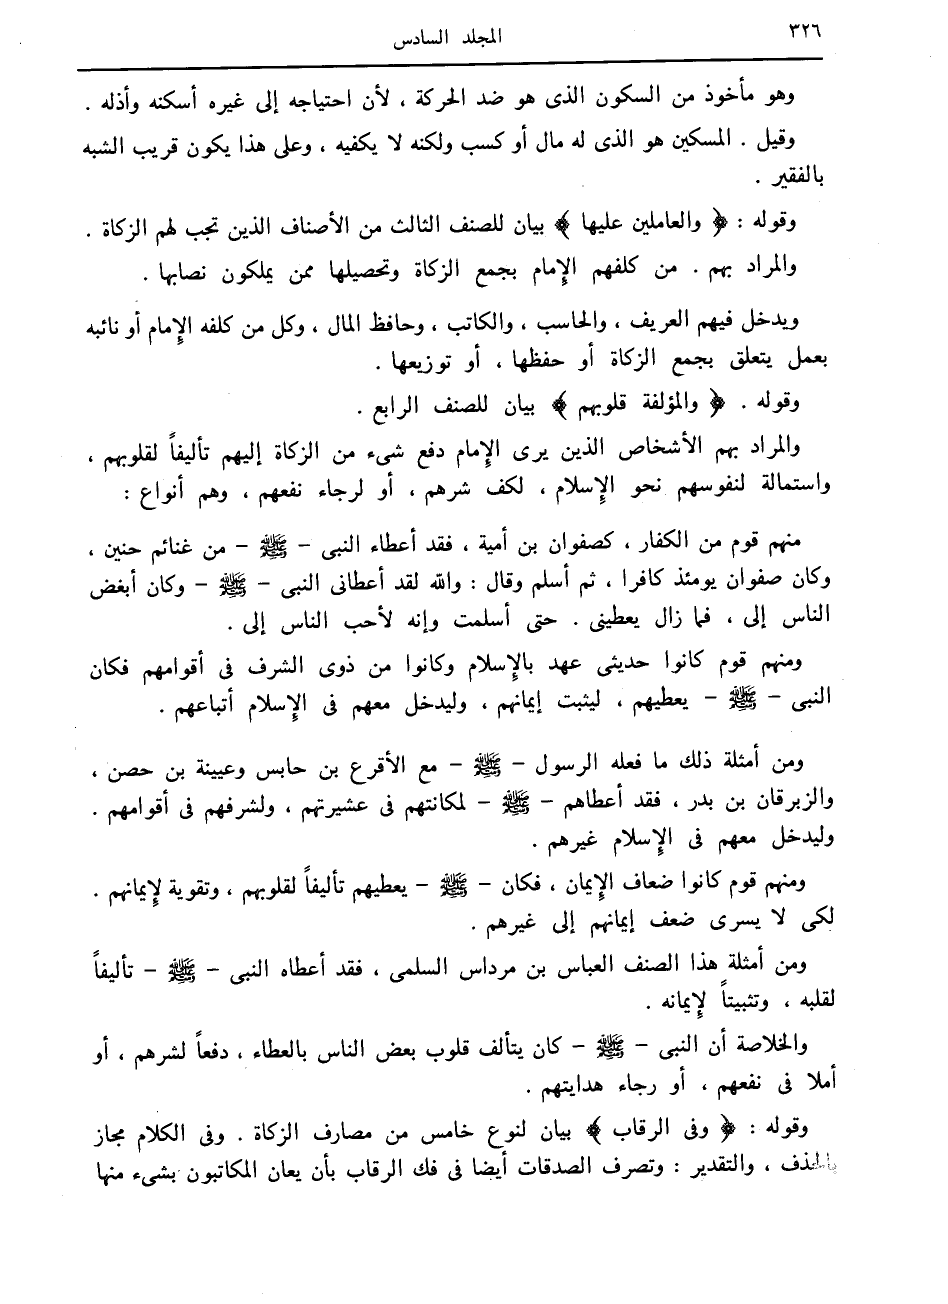 ٣٢٦
المجلد السادس
وهو مأخوذ من السكون الذى هو ضد الحركة ، لأن احتياجه إلى غيره أسكنه وأذله .
وقيل . المسكين هو الذى له مال أو كسب ولكنه لا يكفيه ، وعلى هذا يكون قريب الشبه
بالفقير .
وقوله : ﴿ والعاملين عليها ﴾ بيان للصنف الثالث من الأصناف الذين تجب لهم الزكاة .
والمراد بهم . من كلفهم الإمام بجمع الزكاة وتحصيلها ممن يملكون نصابها .
ويدخل فيهم العريف ، والحاسب ، والكاتب ، وحافظ المال ، وكل من كلفه الإمام أو نائبه
بعمل يتعلق بجمع الزكاة أو حفظها ، أو توزيعها .
وقوله . ﴿ والمؤلفة قلوبهم ﴾ بيان للصنف الرابع .
والمراد بهم الأشخاص الذين يرى الإمام دفع شىء من الزكاة إليهم تأليفاً لقلوبهم ،
واستمالة لنفوسهم نحو الإسلام ، لكف شرهم ، أو لرجاء نفعهم ، وهم أنواع :
منهم قوم من الكفار ، كصفوان بن أمية ، فقد أعطاء النبى - ﷺ - من غنائم حنين ،
وكان صفوان يومئذ كافرا ، ثم أسلم وقال : والله لقد أعطانى النبى - ﷺ - وكان أبغض
الناس إلى ، فما زال يعطينى . حتى أسلمت وإنه لأحب الناس إلى .
ومنهم قوم كانوا حديثى عهد بالإسلام وكانوا من ذوى الشرف فى أقوامهم فكان
النبى - ﷺ - يعطيهم ، ليثبت إيمانهم ، وليدخل معهم فى الإسلام أتباعهم .
ومن أمثلة ذلك ما فعله الرسول - ﷺ - مع الأقرع بن حابس وعيينة بن حصن ،
والزبرقان بن بدر ، فقد أعطاهم - ﷺ - لمكانتهم فى عشيرتهم ، ولشرفهم فى أقوامهم .
وليدخل معهم فى الإسلام غيرهم .
ومنهم قوم كانوا ضعاف الإيمان ، فكان - ﷺ - يعطيهم تأليفاً لقلوبهم ، وتقوية لإيمانهم .
لكى لا يسرى ضعف إيمانهم إلى غيرهم .
ومن أمثلة هذا الصنف العباس بن مرداس السلمى ، فقد أعطاه النبى - ﷺ - تأليفاً
لقلبه ، وتثبيتاً لإيمانه .
والخلاصة أن النبى - ﷺ - كان يتألف قلوب بعض الناس بالعطاء ، دفعاً لشرهم ، أو
أملا فى نفعهم ، أو رجاء هدايتهم .
وقوله : ﴿ وفى الرقاب ﴾ بيان لنوع خامس من مصارف الزكاة . وفى الكلام مجاز
بالحذف ، والتقدير : وتصرف الصدقات أيضا فى فك الرقاب بأن يعان المكاتبون بشىء منها